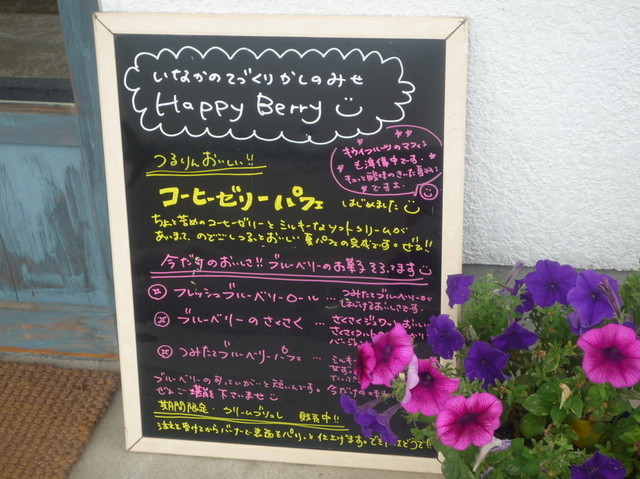 いなかのてづくりかしのみせ
Happy Berry
キウイフルーツのマフィン
も準備中です。
キュッと酸味のきいた夏マフィン
ですよ
つるりんおいしい!!
コーヒーゼリーパフェ はじめました
ちょっと苦めのコーヒーゼリーとミルキーなソフトクリームが
あいまって、のどごしつるっとおいしい夏パフェの完成です。ぜひ!!
今だけのおいしさ!! ブルーベリーのお菓子ふえてます
フレッシュブルーベリーロール … つみたてブルーベリーが
ブルーベリーのさくさく … さくさくジュワッとおいしい
つみたてブルーベリーパフェ … ミルキー
ブルーベリーの旬っていがいと短いんです。今だけの
ぜひご堪能下さいませ
期間限定・クリームブリュレ 販売中!!
注文を受けてからバーナーで表面をパリッと仕上げます。